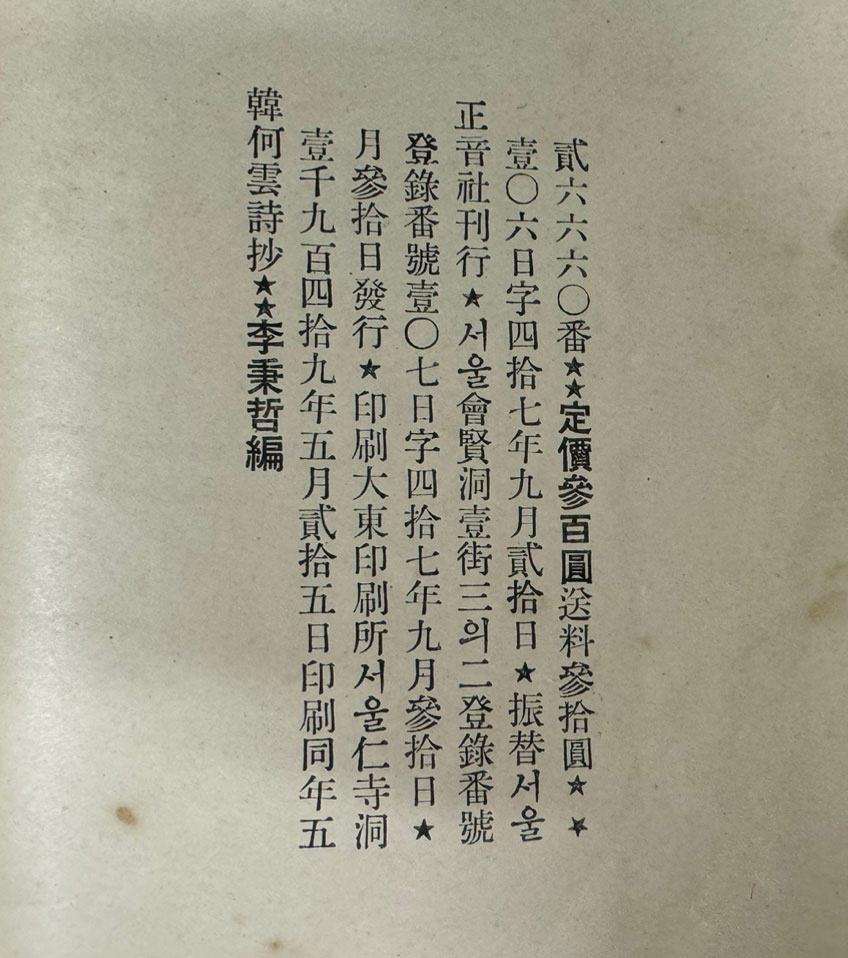 韓何雲詩抄★★李秉哲編
壹千九百四拾九年五月貳拾五日印刷同年五
月參拾日發行★印刷大東印刷所서울仁寺洞
登錄番號壹〇七日字四拾七年九月參拾日★
正音社刊行★서울會賢洞壹街三의二登錄番號
壹〇六日字四拾七年九月貳拾日★振替서울
貳六六六〇番★★定價參百圓送料參拾圓★★